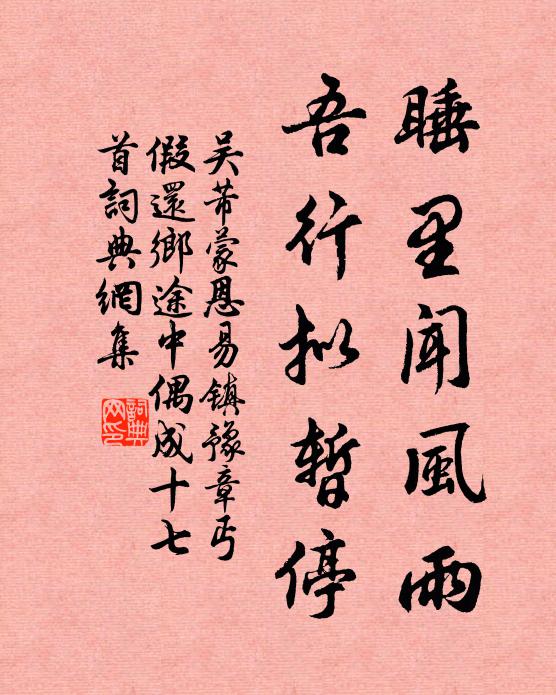 睡里闻風雨
吾行拟暫停
吴芾蒙恩易镇豫章丐
假還鄉途中偶成十七
首詞典網集
詞典
网印